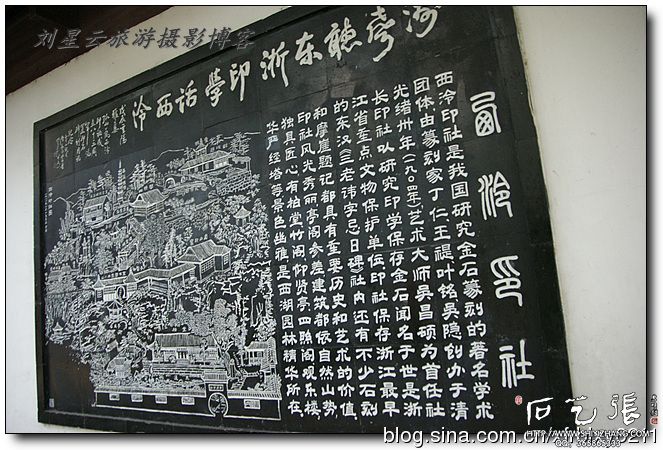 刘星云旅游摄影博客
湖壖聽东浙印學话西泠
西泠印社
西泠印社是我国研究金石篆刻的著名学术
团体由篆刻家丁仁王禔叶铭吴隐创办于清
光绪卅年(一九〇四年)艺术大师吴昌硕为首任社
长印社以研究印学保存金石闻名于世是浙
江省重点文物保护单位印社保存浙江最早
的东汉《三老讳字忌日碑》社内还有不少石刻
和摩崖题记都具有重要历史和艺术的价值
印社风光秀丽亭阁参差建筑都依自然山势
独具匠心有柏堂竹阁仰贤亭四照阁观乐楼
华严经塔等景色幽雅是西湖园林精华所在
石艺張
HTTP://WWW.SHIYIZHANG.COM
blog.sina.com.cn/